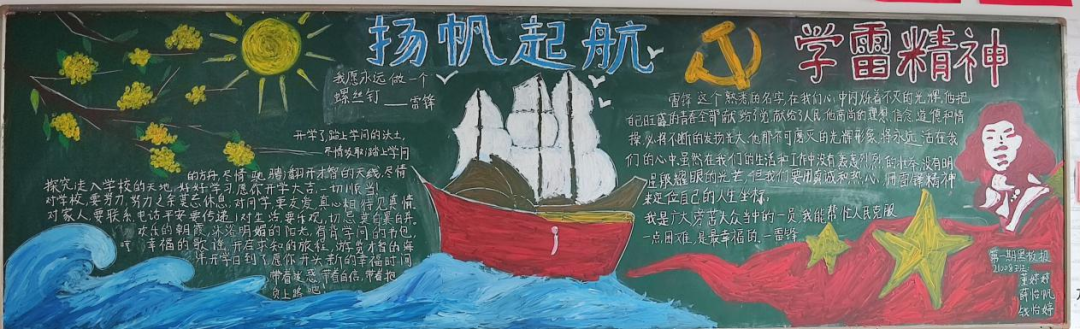 扬帆起航
学雷精神
我愿永远做一个
螺丝钉
——雷锋
开学了踏上学问的沃土,
尽情汲取踏上学问
的方舟,尽情驰腾翻开才智的天线,尽情
探究走入学校的天地,好好学习愿你开学大吉,一切顺当!
对学校,要努力,努力之余莫忘休息,对同学,要友爱,真心相待见真情
对家人,要联系,电话平安要传递,对生活,要乐观,切忌
欢乐的朝霞,沐浴明媚的阳光,背背学问的书包,
哼幸福的歌谣,开启求和的旅程,游览才智的海
洋开学日到了愿你开头新的幸福时间
带着
负上路吧!
雷锋这个熟悉的名字,在我们心中闪烁着不灭的光辉,他把
自己旺盛的青春全部献给了党,献给了人民,他高尚的理想,信念,道德和情
操,必将不断的发扬光大,他那不可磨灭的光辉形象,将永远活在我
们的心中,虽然在我们的生活和工作中没有轰轰烈烈的壮举,没有明
星般耀眼的光芒,但我们要用真诚和热心,用雷锋精神
来定位自己的人生坐标,
我是广大劳苦大众当中的一员,我能帮忙人民克服
一点困难,是最幸福的.—雷锋
第一期黑板报
董婷婷
薛怡帆
钱怡婷